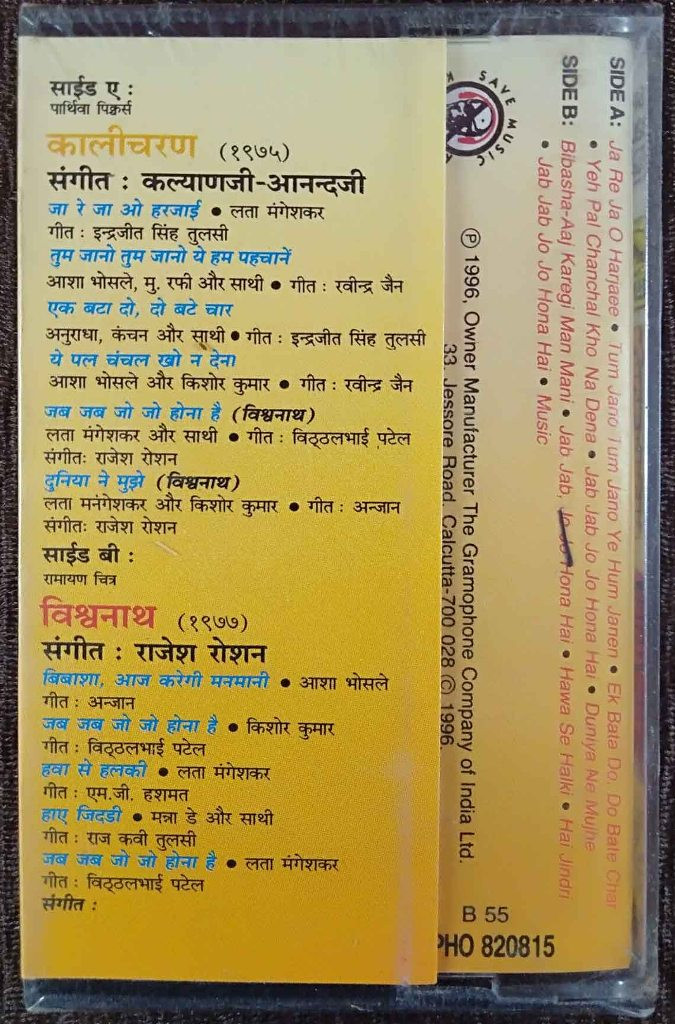 साईड ए :
पार्थिवा पिक्चर्स
कालीचरण (१९७५)
संगीत : कल्याणजी-आनन्दजी
जा रे जा ओ हरजाई ● लता मंगेशकर
गीत : इन्द्रजीत सिंह तुलसी
तुम जानो तुम जानो ये हम पहचानें
आशा भोसले, मु. रफी और साथी ● गीत : रवीन्द्र जैन
एक बटा दो, दो बटे चार
अनुराधा, कंचन और साथी ● गीत : इन्द्रजीत सिंह तुलसी
ये पल चंचल खो न देना
आशा भोसले और किशोर कुमार ● गीत : रवीन्द्र जैन
जब जब जो जो होना है (विश्वनाथ)
लता मंगेशकर और साथी ● गीत : विठ्ठलभाई पटेल
संगीतः राजेश रोशन
दुनिया ने मुझे (विश्वनाथ)
लता मनंगेशकर और किशोर कुमार ● गीत : अन्जान
संगीतः राजेश रोशन
साईड बी :
रामायण चित्र
विश्वनाथ (१९७७)
संगीत : राजेश रोशन
बिबाशा, आज करेगी मनमानी ● आशा भोसले
गीत : अन्जान
जब जब जो जो होना है ● किशोर कुमार
गीत : विठ्ठलभाई पटेल
हवा से हलकी ● लता मंगेशकर
गीत : एम.जी. हशमत
हाए जिदडी ● मन्ना डे और साथी
गीत : राज कवी तुलसी
जब जब जो जो होना है ● लता मंगेशकर
गीत : विठ्ठलभाई पटेल
संगीत :
SIDE A: Ja Re Ja O Harjaee ● Tum Jano Tum Jano Ye Hum Janen ● Ek Bata Do, Do Bate Char
● Yeh Pal Chanchal Kho Na Dena ● Jab Jab Jo Jo Hona Hai ● Duniya Ne Mujhe
SIDE B: Bibasha-Aaj Karegi Man Mani ● Jab Jab, Jo Jo Hona Hai ● Hawa Se Halki ● Hai Jindri
● Jab Jab Jo Jo Hona Hai ● Music
SAVE MUSIC
℗ 1996, Owner Manufacturer The Gramophone Company of India Ltd.
33, Jessore Road, Calcutta-700 028 © 1996
B 55
PHO 820815